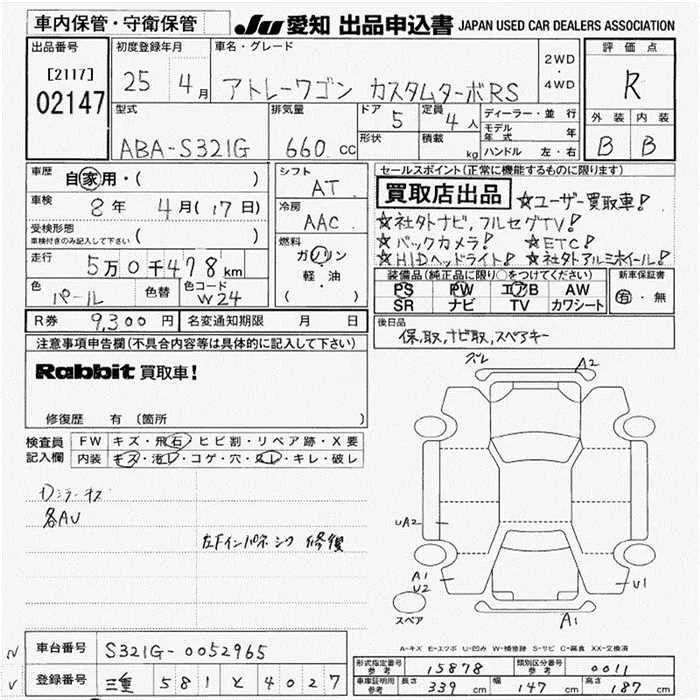 車内保管・守衛保管
JU 愛知 出品申込書 JAPAN USED CAR DEALERS ASSOCIATION
出品番号
[2117]
02147
初度登録年月
25 4月
車名・グレード
アトレーワゴン カスタムターボRS
2WD
・
4WD
評価点
R
外装 内装
B B
型式
ABA-S321G
排気量
660 cc
ドア
5
定員
4人
形状
積載
kg
ディーラー・並行
モデル年式 年
ハンドル 左・右
車歴
自家用・( )
車検
8年 4月(17日)
受検形態
車検付きのみ記入して下さい( )
走行
5万0千478km
色
パール
色替
色コード
W24
シフト
AT
冷房
AAC
燃料
ガソリン
軽・油
( )
セールスポイント(正常に機能するものに限ります)
買取店出品 ☆ユーザー買取車!
☆社外ナビ,フルセグTV!
☆バックカメラ! ☆ETC!
☆HIDヘッドライト! ☆社外アルミホイール!
装備品(純正品に限り○をつけてください)
PS PW エアB AW
SR ナビ TV カワシート
新車保証書
有・無
R券 9,300円
名変通知期限 月 日
後日品
保,取,ナビ取,スペアキー
注意事項申告欄(不具合内容等は具体的に記入して下さい)
Rabbit 買取車!
修復歴 有 〔箇所 〕
検査員記入欄
FW キズ・飛石・ヒビ割・リペア跡・X要
内装 キズ・汚レ・コゲ・穴・スレ・キレ・破レ
各AU
左Fインパネ シワ 修復
ズレ
A2
UA2
A1
U2
U1
A1
スペア
A-キズ E-エクボ U-凹み W-補修跡 S-サビ C-腐食 XX-交換済
車台番号 S321G-0052965
登録番号 三重 581 と 4027
形式指定番号 参考 15878
類別区分番号 参考 0011
車車証明用 参考 長さ 339 cm 幅 147 cm 高さ 187 cm